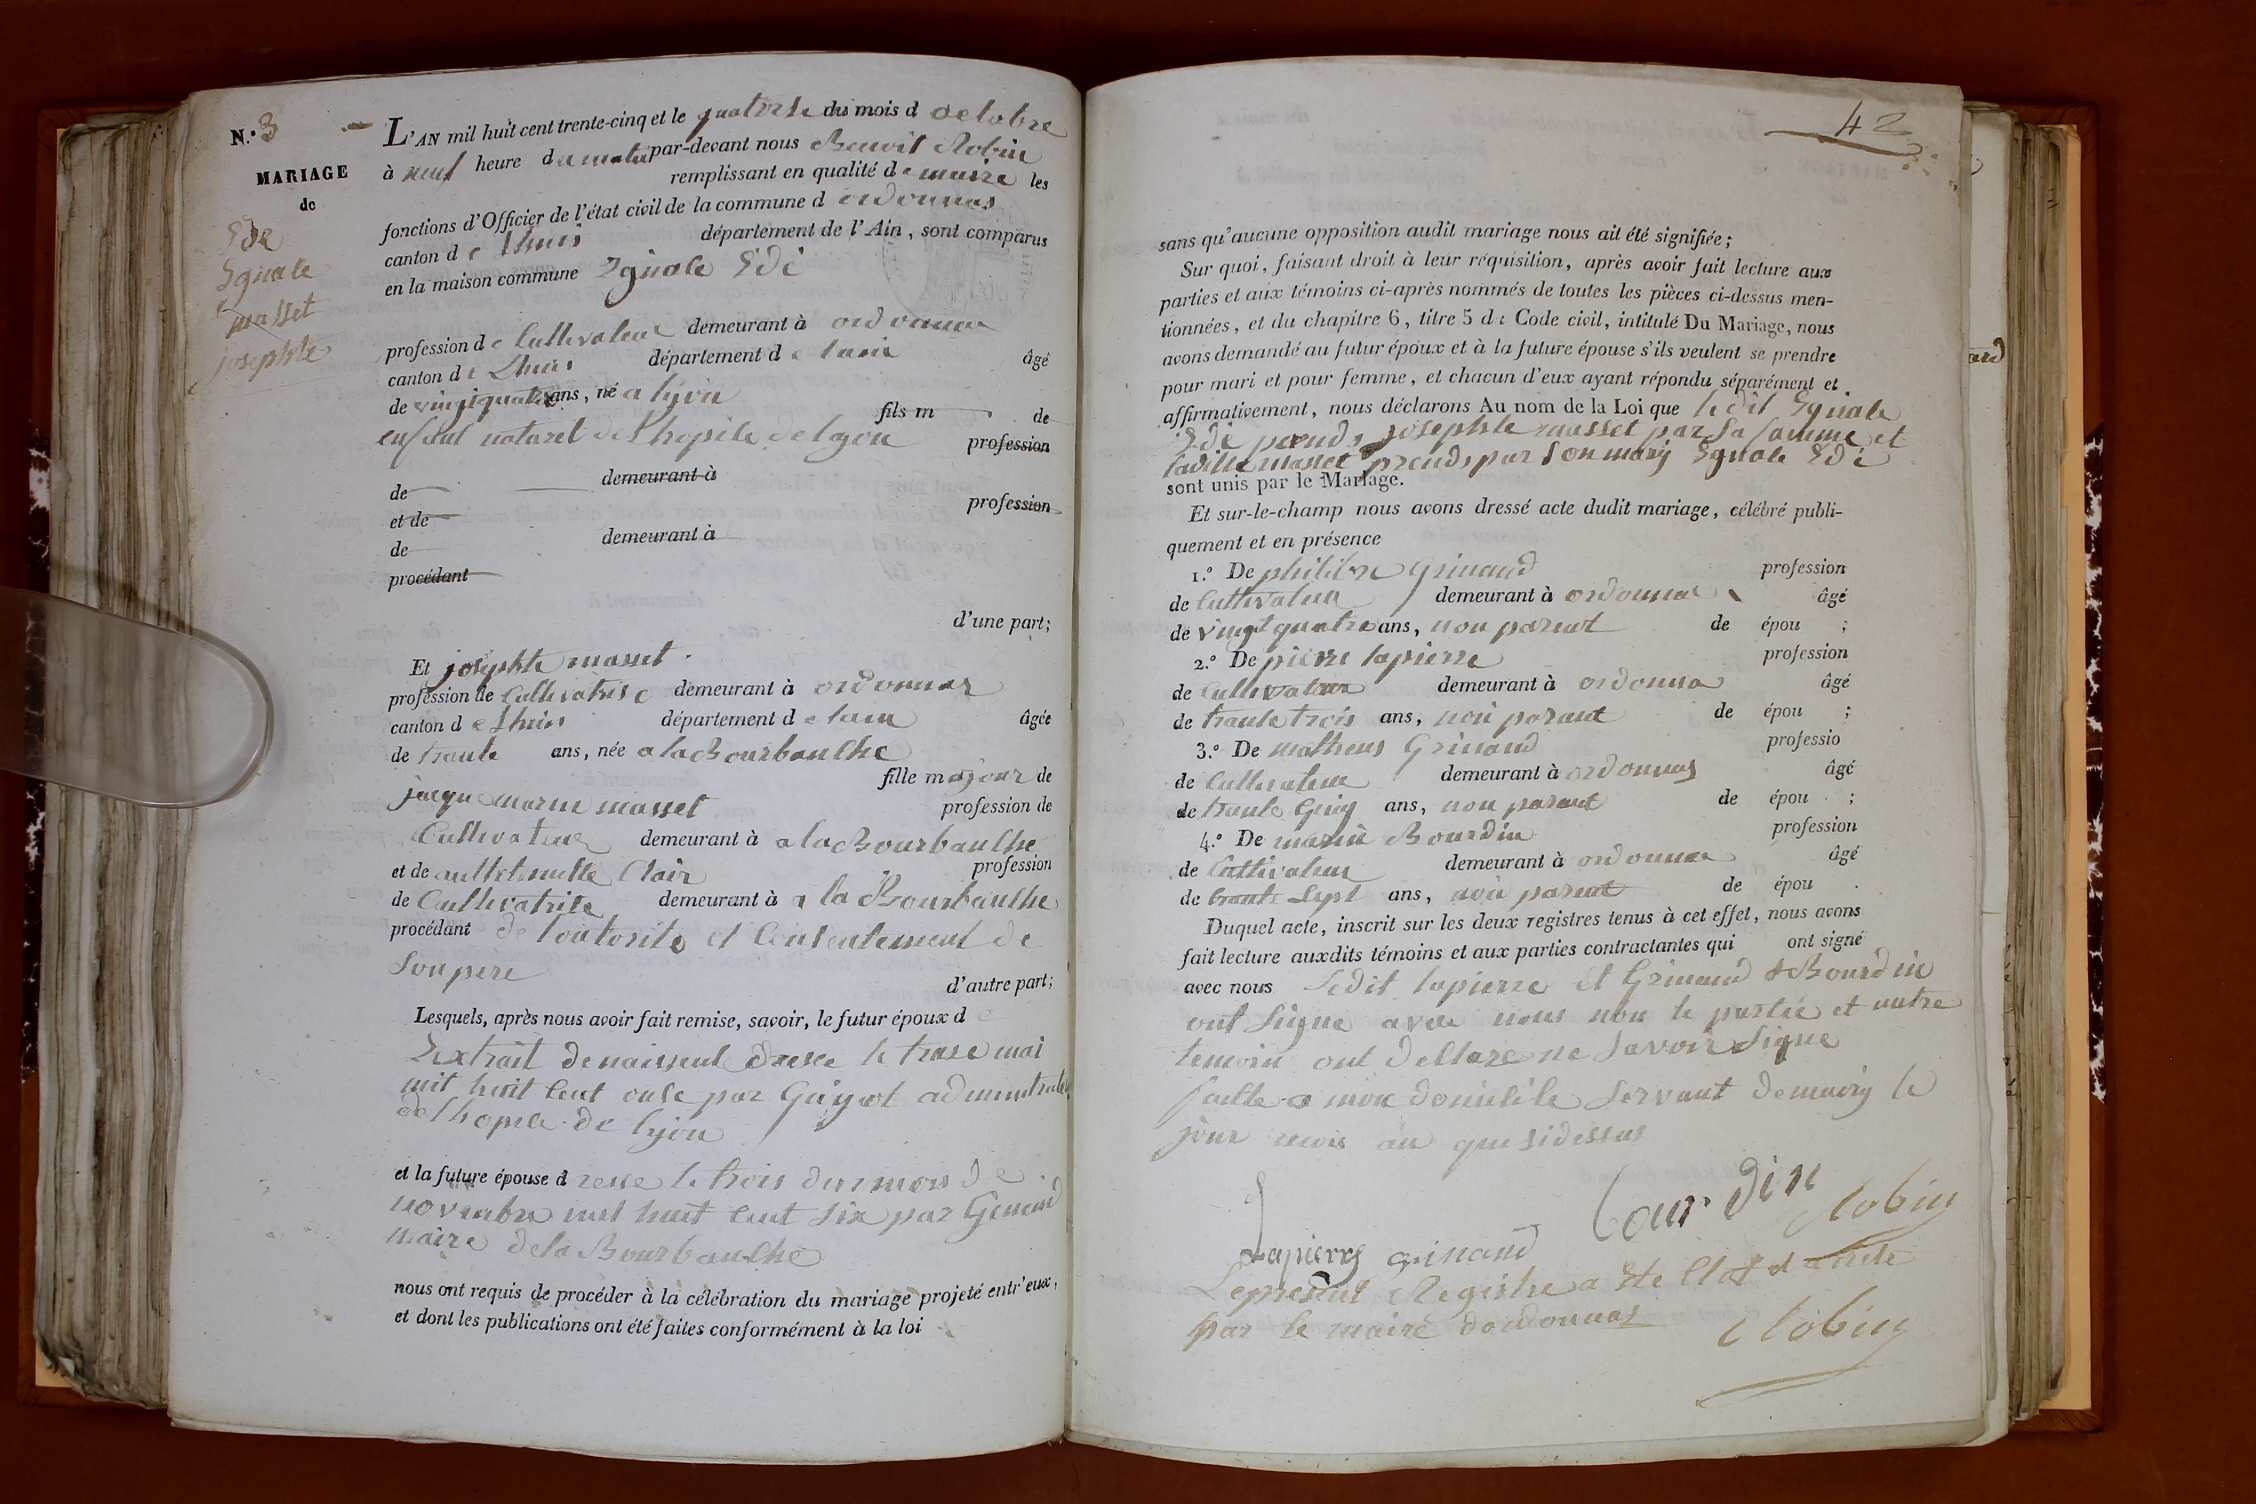 N.º 3
MARIAGE
de
Ede
Egnale
masset
josephte
L'AN mil huit cent trente-cinq et le quatorse du mois d octobre
à neuf heure du matin par-devant nous Benoit Robin
remplissant en qualité de maire les
fonctions d'Officier de l'état civil de la commune d ordonnas
canton de Lhuis département de l'Ain, sont comparus
en la maison commune Egnale Edé
profession de Cultivateur demeurant à ordonnas
canton de Lhuis département de laein âgé
de vingtquatre ans, né a lyon
fils m de
enfant naturel de lhopile de lyon profession
de demeurant à
et de profession
de demeurant à
procédant
d'une part;
Et josephte masset
profession de Cultivatrise demeurant à ordonnas
canton de Lhuis département de laein âgée
de trante ans, née a laBourbanche
fille majour de
jaque marin masset profession de
Cultivateur demeurant à a laBourbanche
et de Clair profession
de Cultivatrise demeurant à a la Bourbanche
procédant de loutorite et Consentement de
Son pere
d'autre part;
Lesquels, après nous avoir fait remise, savoir, le futur époux d e
Extrait denaissent dresee le trase mai
mil huit Cent onse par Guyot administrateur
de lhopile de lyon
et la future épouse d resse le trois du mois de
novembre mil huit Cent Six par Genein
maire dela Bourbanche
nous ont requis de procéder à la célébration du mariage projeté entr'eux,
et dont les publications ont été faites conformément à la loi
42
sans qu'aucune opposition audit mariage nous ait été signifiée;
Sur quoi, faisant droit à leur réquisition, après avoir fait lecture aux
parties et aux témoins ci-après nommés de toutes les pièces ci-dessus men-
tionnées, et du chapitre 6, titre 5 du Code civil, intitulé Du Mariage, nous
avons demandé au futur époux et à la future épouse s'ils veulent se prendre
pour mari et pour femme, et chacun d'eux ayant répondu séparément et
affirmativement, nous déclarons Au nom de la Loi que ledit Egnale
Edé prends josephte masset par Sa famme et
ladille masset prends par Son mary Egnale Edé
sont unis par le Mariage.
Et sur-le-champ nous avons dressé acte dudit mariage, célébré publi-
quement et en présence
1.º De philibre Grinand profession
de Cultivateur demeurant à ordonnas âgé
de vingtquatre ans, non parent de épou ;
2.º De pierre lapierre profession
de Cultivateur demeurant à ordonna âgé
de trante trois ans, non parant de épou ;
3.º De matheus Grinand professio
de Cultivateur demeurant à ordonnas âgé
de trante Cinq ans, non parant de épou ;
4.º De marin Bourdin profession
de Cultivateur demeurant à ordonnas âgé
de trante Sept ans, non parent de épou .
Duquel acte, inscrit sur les deux registres tenus à cet effet, nous avons
fait lecture auxdits témoins et aux parties contractantes qui ont signé
avec nous Ledit lapierre et Grinand & Bourdin
ont Signe avec nous non le partie et autre
temoin ont dellare ne Savoir Signe
faitte a mon domicile Servant de mairy le
jour mois an que sidessus
Lapierre Grinand Bourdin Robin
Lepresent Registre a ete Clos et arrete
par le maire dordonnas Robin